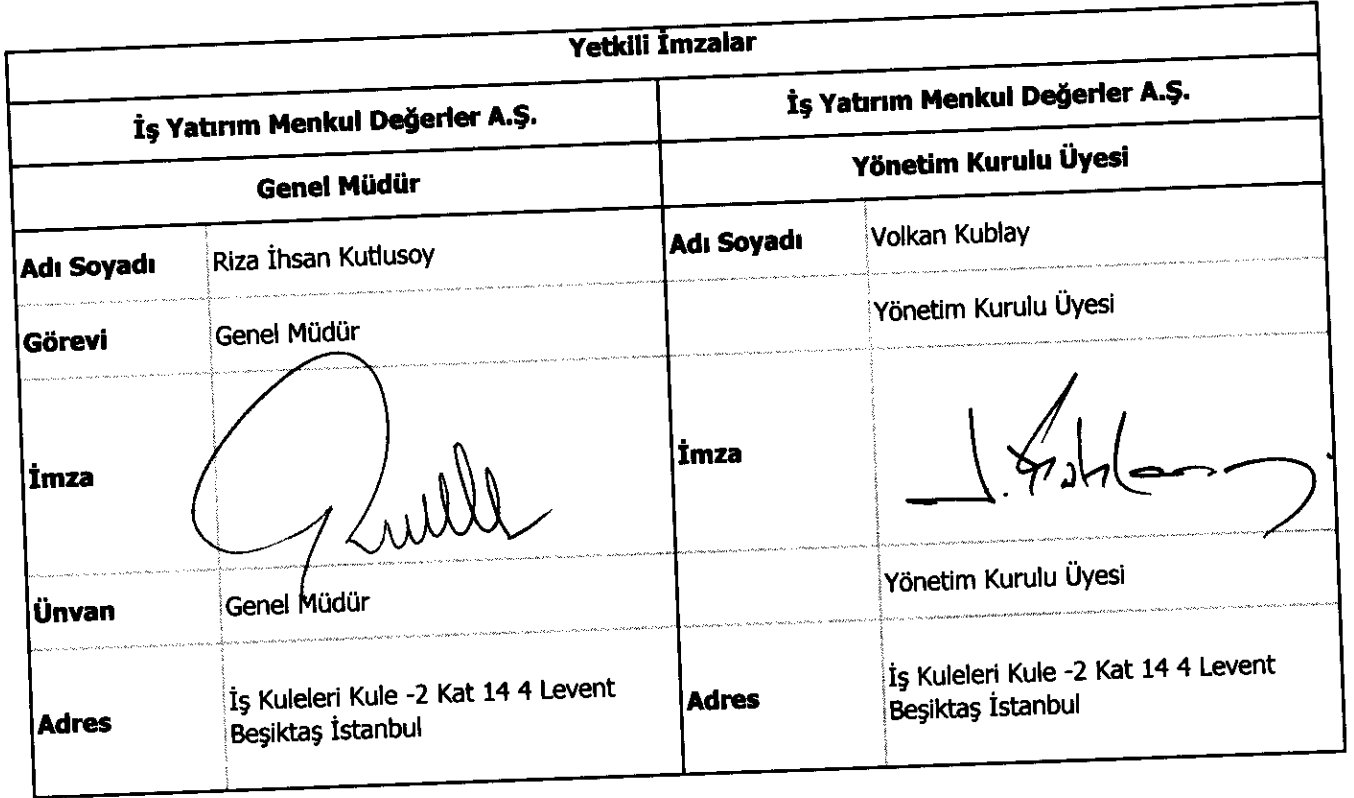 Yetkili İmzalar
İş Yatırım Menkul Değerler A.Ş. İş Yatırım Menkul Değerler A.Ş.
Genel Müdür Yönetim Kurulu Üyesi
Adı Soyadı Riza İhsan Kutlusoy Adı Soyadı Volkan Kublay
Görevi Genel Müdür Yönetim Kurulu Üyesi
İmza İmza
Ünvan Genel Müdür Yönetim Kurulu Üyesi
Adres İş Kuleleri Kule -2 Kat 14 4 Levent Adres İş Kuleleri Kule -2 Kat 14 4 Levent
Beşiktaş İstanbul Beşiktaş İstanbul